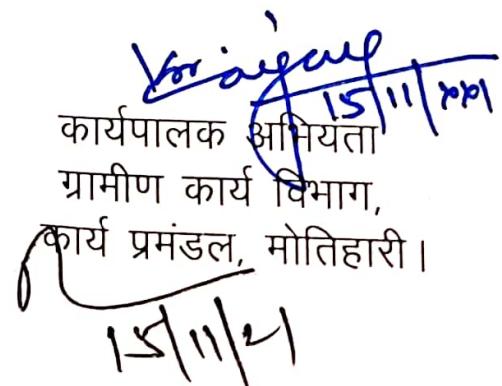 15/11/2021
कार्यपालक अभियता
ग्रामीण कार्य विभाग,
कार्य प्रमंडल, मोतिहारी।
15/11/21